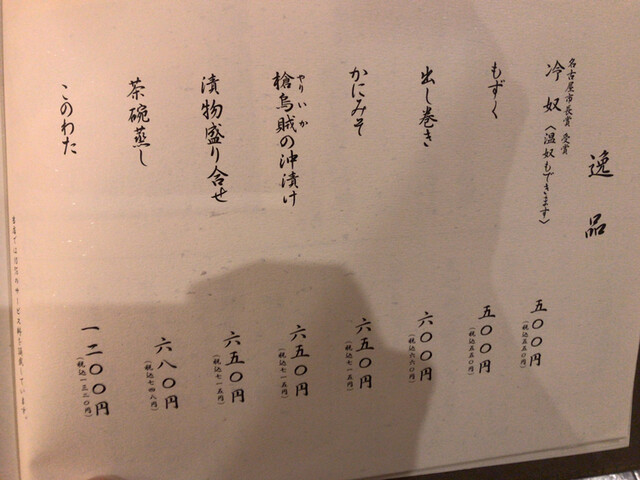 逸品
名古屋市長賞 受賞
冷奴〈温奴もできます〉
五〇〇円
(税込五五〇円)
もずく
五〇〇円
(税込五五〇円)
出し巻き
六〇〇円
(税込六六〇円)
かにみそ
六五〇円
(税込七一五円)
やりいか
槍烏賊の沖漬け
六五〇円
(税込七一五円)
漬物盛り合せ
六五〇円
(税込七一五円)
茶碗蒸し
六八〇円
(税込七四八円)
このわた
一二〇〇円
(税込一三二〇円)
のサービス料を頂戴しています。